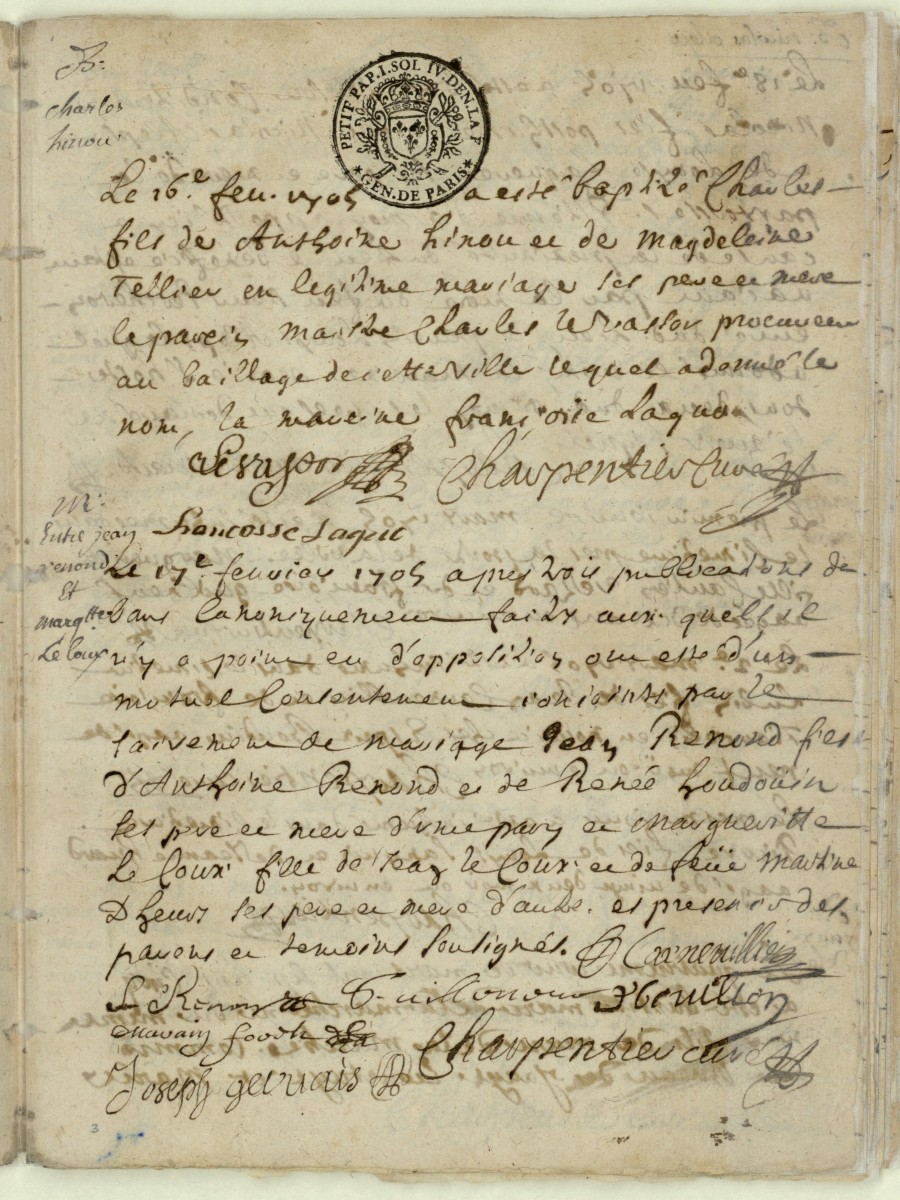 B.
Charles
hinou
PETIT PAP. I. SOL IV. DEN. LA F
GEN. DE PARIS
Le 16e feu. 1705 a esté baptizé Charles
fils de Anthoine hinou et de Magdeleine
Tellier en legitime mariage ses pere et mere
le parein Maistre Charles levassor procureur
au baillage de cette ville lequel a donné le
nom, la mareine françoise Laquo
Levassor Charpentier Curé
francosse Laque
M.
Entre jean
renond
Et
Margtte
Le Cour
Le 17e feuvier 1705 apres trois publications de
bans Canoniquement faits aux quelles il
n'y a point eu d'oppolition ont esté d'un
mutuel Consentement conioints par le
sacrement de mariage Jean Renond fils
d'Anthoine Renond et de Reneé houdoüin
ses pere et mere d'une part et Margueritte
Le Cour fille de Jean le Cour et de feüe Martine
Dheur ses pere et mere d'autre. es presences des
parens et temoins soulignés. Corneuillier
Charpentier curé
Joseph gervais
3